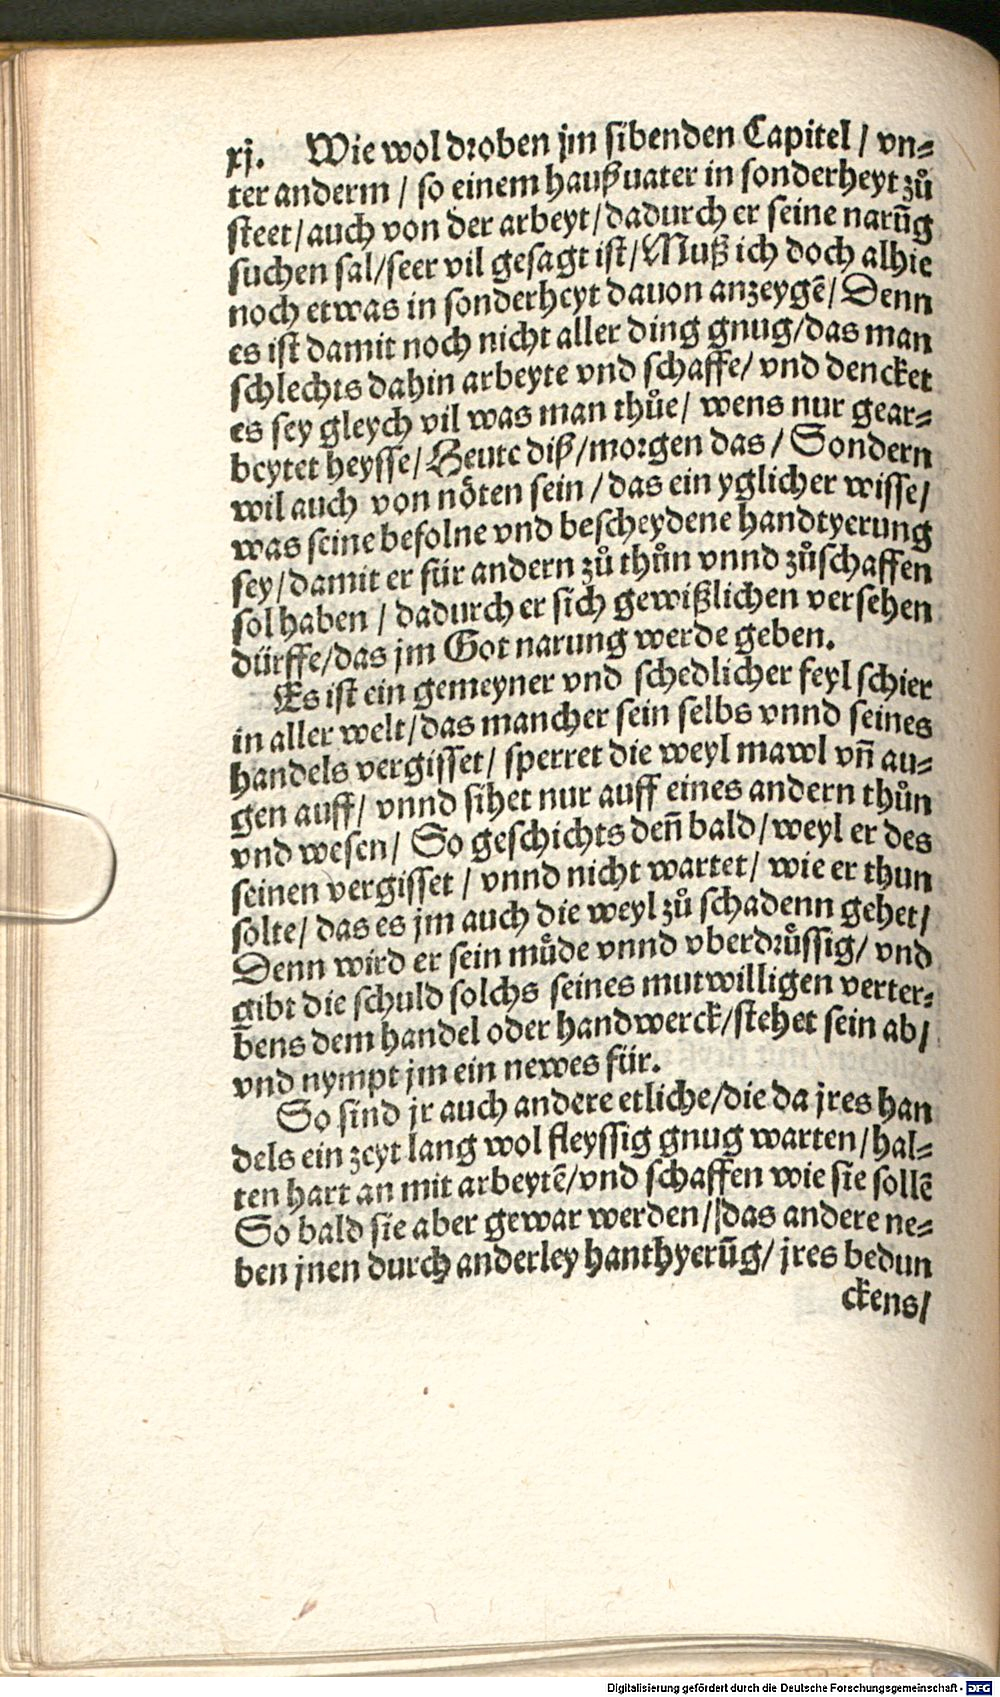 xj. Wie wol droben jm sibenden Capitel / vn⸗
ter anderm / so einem haußuater in sonderheyt zů
steet / auch von der arbeyt / dadurch er seine narūg
suchen sal / seer vil gesagt ist / Muß ich doch alhie
noch etwas in sonderheyt dauon anzeygē / Denn
es ist damit noch nicht aller ding gnug / das man
schlechts dahin arbeyte vnd schaffe / vnd dencket
es sey gleych vil was man thůe / wens nur gear⸗
beytet heysse / Heute diß / morgen das / Sondern
wil auch von nöten sein / das ein yglicher wisse /
was seine befolne vnd bescheydene handtyerung
sey / damit er für andern zů thůn vnnd zůschaffen
sol haben / dadurch er sich gewißlichen versehen
dürffe / das jm Got narung werde geben.
Es ist ein gemeyner vnd schedlicher feyl schier
in aller welt / das mancher sein selbs vnnd seines
handels vergisset / sperret die weyl mawl vn̄ au⸗
gen auff / vnnd sihet nur auff eines andern thůn
vnd wesen / So geschichts den̄ bald / weyl er des
seinen vergisset / vnnd nicht wartet / wie er thun
solte / das es jm auch die weyl zů schadenn gehet /
Denn wird er sein můde vnnd vberdrůssig / vnd
gibt die schuld solchs seines mutwilligen verter⸗
bens dem handel oder handwerck / stehet sein ab /
vnd nympt jm ein newes für.
So sind jr auch andere etliche / die da jres han
dels ein zeyt lang wol fleyssig gnug warten / hal⸗
ten hart an mit arbeytē / vnd schaffen wie sie sollē
So bald sie aber gewar werden / das andere ne⸗
ben jnen durch anderley hanthyerūg / jres bedun
ckens /
Digitalisierung gefördert durch die Deutsche Forschungsgemeinschaft - DFG